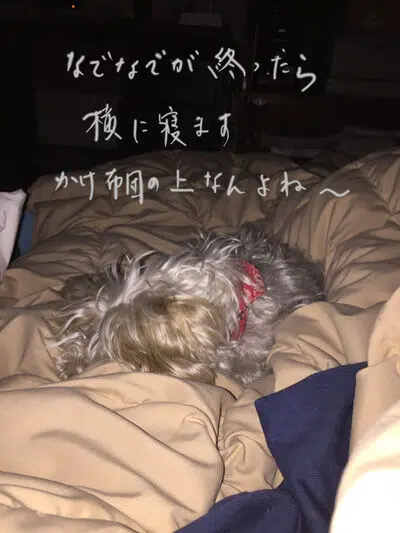 なでなでが終ったら
横に寝ます
かけ布団の上なんよね〜